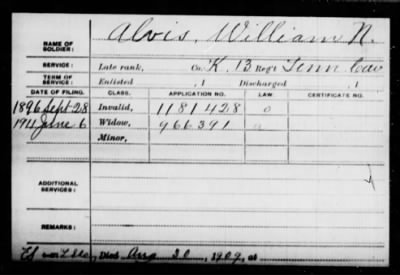 Alvis, William N.
NAME OF SOLDIER:
SERVICE: Late rank, Co. K, 13 Reg't Tenn Cav
TERM OF SERVICE: Enlisted , 1 Discharged , 1
DATE OF FILING. CLASS. APPLICATION NO. LAW. CERTIFICATE NO.
1896 Sept 28 Invalid, 1181428
1914 June 6 Widow, 966391
Minor,
ADDITIONAL SERVICES:
REMARKS:
Died Aug 30, 1909, at